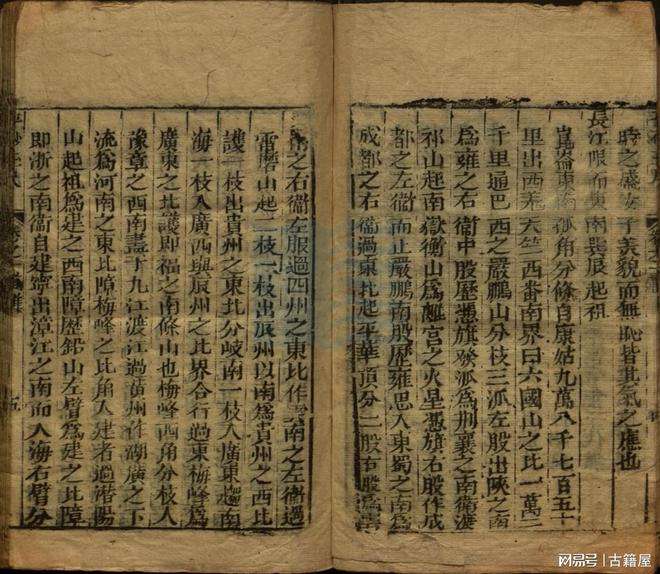 時之盛女子美貌而無恥皆其氣之應也
長江限南與南喪辰起祖
崑崙東隅 角分條自康姑九萬八千七百五十
里出西 天竺西番南界曰六國山之北一萬二
千里通巴西之嚴鵬山分枝三派左股出陜之南
為雍之右衞中股歷憑旗 派為荆襄之南衞
祁山起南嶽衡山為離宮之火星憑旗右股作成
都之左衞而止嚴鵬南股歷雍思入東蜀之南為
成都之右衞過東北起平華頂分二股右股為
之右衞左服過四州之東比作雲南之左衞過
雷 山起二枝一枝出辰州以南為貴州之西比
護一枝出貴州之東北分岐南一枝入廣東趨南
海一枝入廣西與辰州之比界合行過東梅峰為
廣東之北護即福之南條山也梅峰西角分枝入
豫章之西南盡于九江渡江過黃州作湖廣之下
流為河南之東比障梅峰之比角入建者過潛陽
山起祖為建之西南障歷鉛山左臂為建之比障
即浙之南衞自建寧出漳江之南而入海右臂分
卷之一
網易号 | 古籍屋